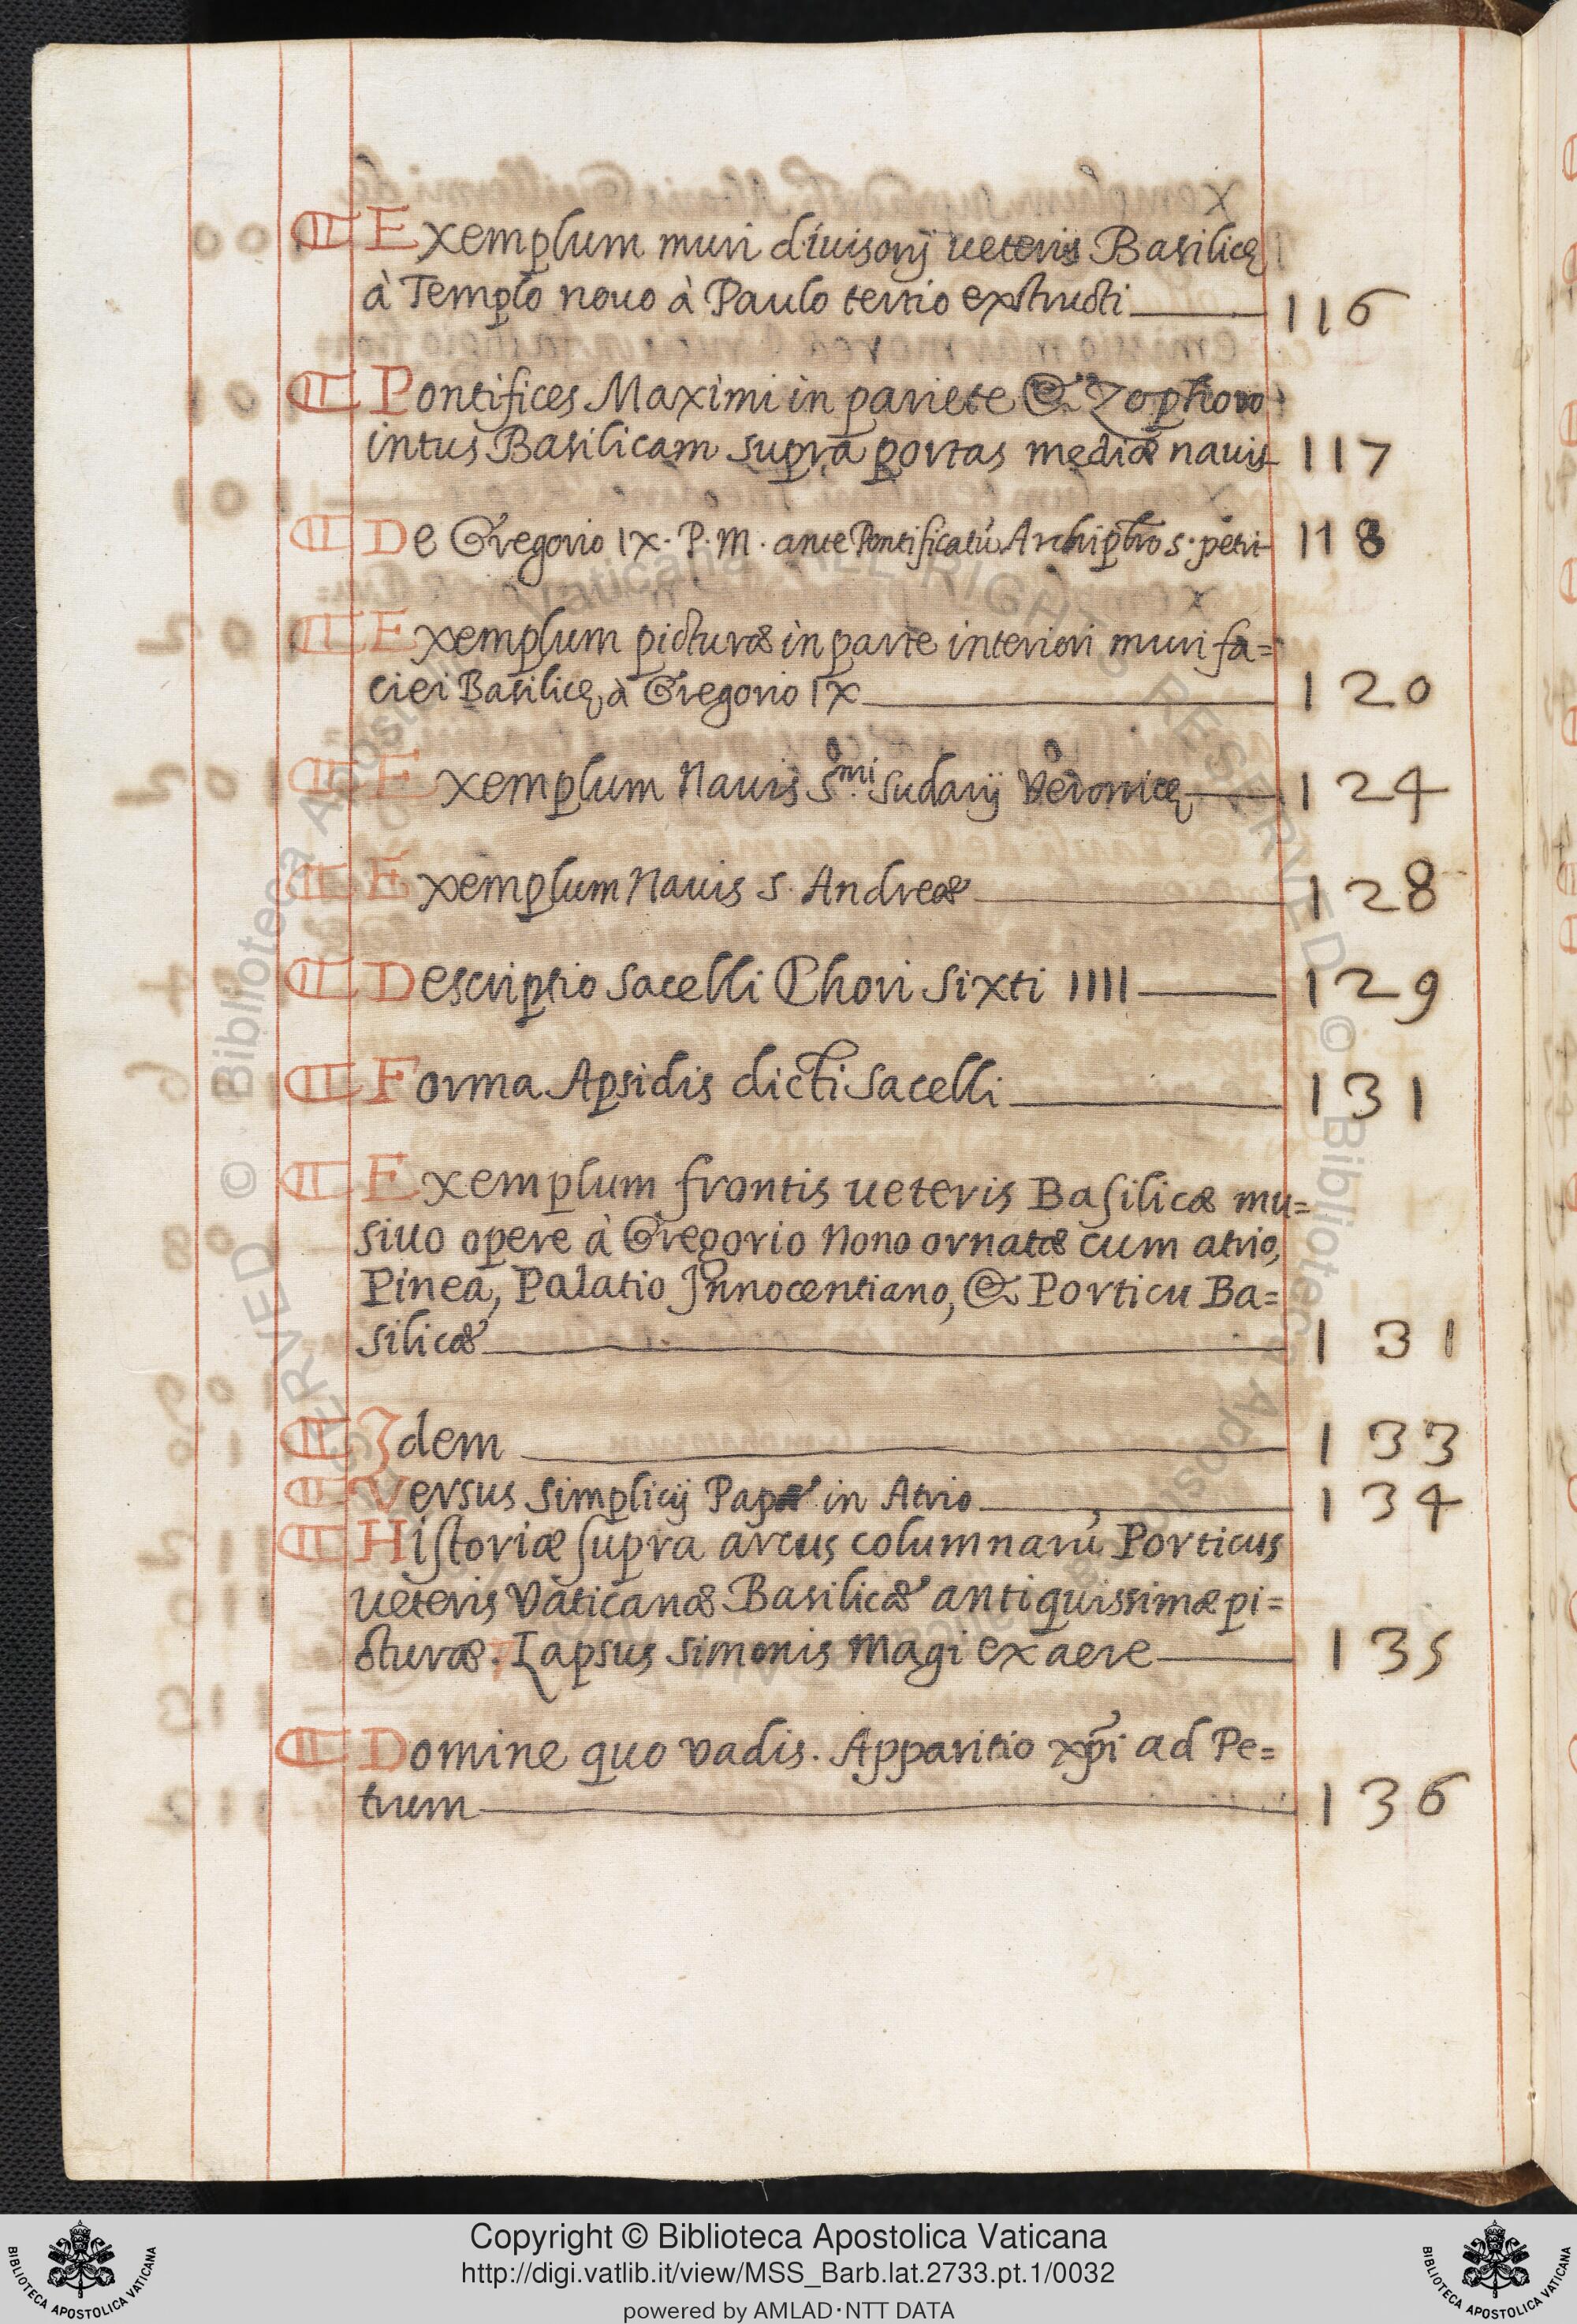 ¶ Exemplum muri diuisorij ueteris Basilicę
à Templo nouo à Paulo tertio exstructi 116
¶ Pontifices Maximi in pariete & Zophoro
intus Basilicam supra portas mediæ nauis 117
¶ De Gregorio IX. P. M. ante Pontificatũ Archipb̃ro s. petri 118
¶ Exemplum picturæ in parte interiori muri fa=
ciei Basilicę à Gregorio IX 120
¶ Exemplum Nauis Sᵐⁱ Sudarij Veronicę 124
¶ Exemplum Nauis S. Andreæ 128
¶ Descriptio Sacelli Chori Sixti IIII 129
¶ Forma Apsidis dicti Sacelli 131
¶ Exemplum frontis ueteris Basilicæ mu=
siuo opere à Gregorio Nono ornatæ cum atrio,
Pinea, Palatio Innocentiano, & Porticu Ba=
silicæ 131
¶ Idem 133
¶ Versus Simplicij Papæ in Atrio 134
¶ Historiæ supra arcus columnarũ Porticus
ueteris Vaticanæ Basilicæ antiquissimæ pi=
cturæ. Lapsus Simonis Magi ex aere 135
¶ Domine quo vadis. Apparitio xp̃i ad Pe=
trum 136
Copyright © Biblioteca Apostolica Vaticana
http://digi.vatlib.it/view/MSS_Barb.lat.2733.pt.1/0032
powered by AMLAD·NTT DATA
BIBLIOTECA APOSTOLICA VATICANA
BIBLIOTECA APOSTOLICA VATICANA